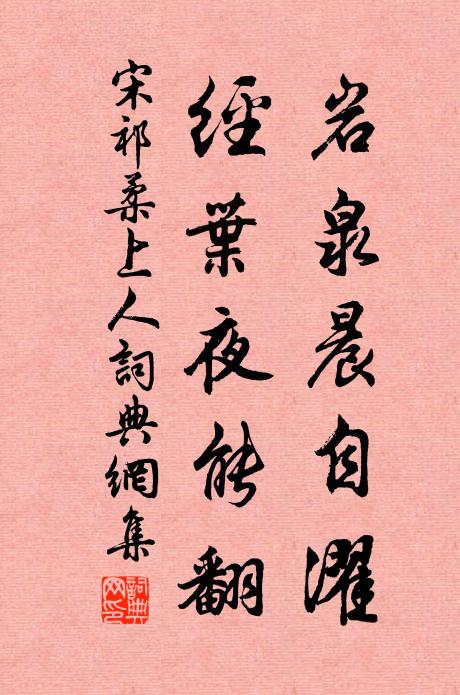 岩泉晨自濯
經葉夜能翻
宋祁柔上人詞典網集
詞典网印